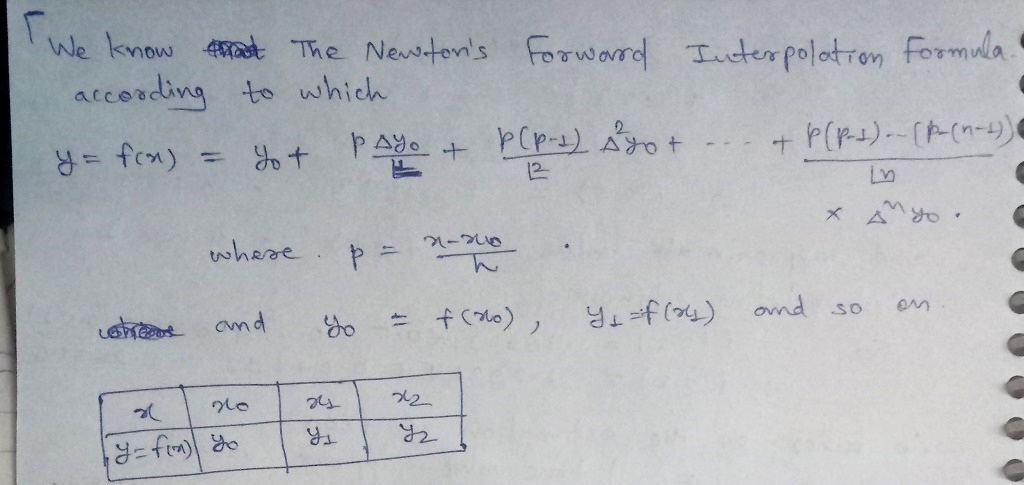 We know The Newton's Forward Interpolation Formula.
according to which
y = f(x) = y₀ + pΔy₀/⌊1 + p(p-1)/⌊2 Δ²y₀ + --- + p(p-1)--(p-(n-1))/⌊n
× Δⁿy₀.
where. p = x-x₀/h .
and y₀ = f(x₀), y₁=f(x₁) and so on
x x₀ x₁ x₂
y=f(x) y₀ y₁ y₂